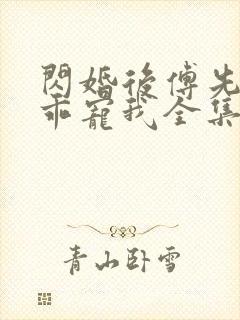 閃婚後傅先
乖寵我全集
青山卧雪